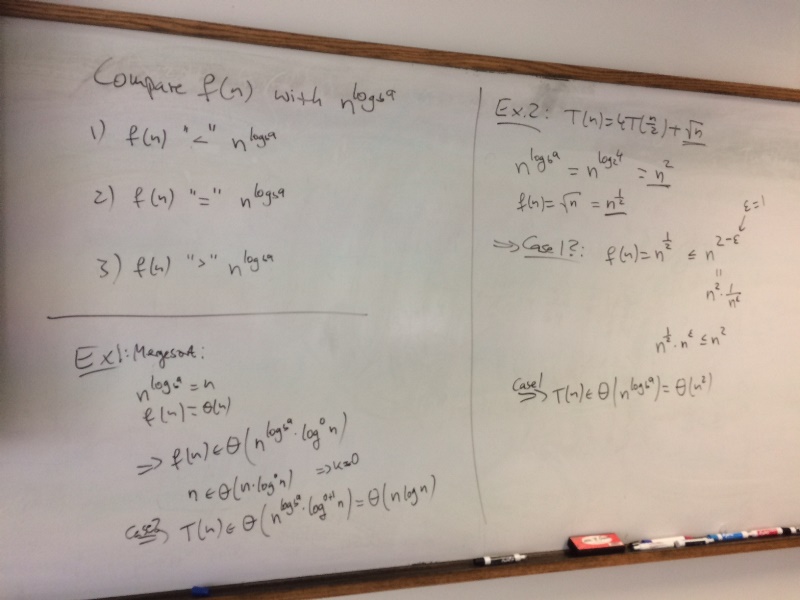 Compare f(n) with n^{log_b a}
1) f(n) "<" n^{log_b a}
2) f(n) "=" n^{log_b a}
3) f(n) ">" n^{log_b a}
Ex1: Mergesort:
n^{log_b a} = n
f(n) = Θ(n)
⇒ f(n) ∈ Θ(n^{log_b a} · log^0 n)
n ∈ Θ(n · log^0 n) ⇒ k=0
Case 2 ⇒ T(n) ∈ Θ(n^{log_b a} · log^{0+1} n) = Θ(n log n)
Ex.2: T(n) = 4T(n/2) + √n
n^{log_b a} = n^{log_2 4} = n^2
f(n) = √n = n^{1/2}
ε=1
⇒ Case 1?: f(n) = n^{1/2} ≤ n^{2-ε}
=
n^2 · 1/n^ε
n^{1/2} · n^ε ≤ n^2
Case 1 ⇒ T(n) ∈ Θ(n^{log_b a}) = Θ(n^2)